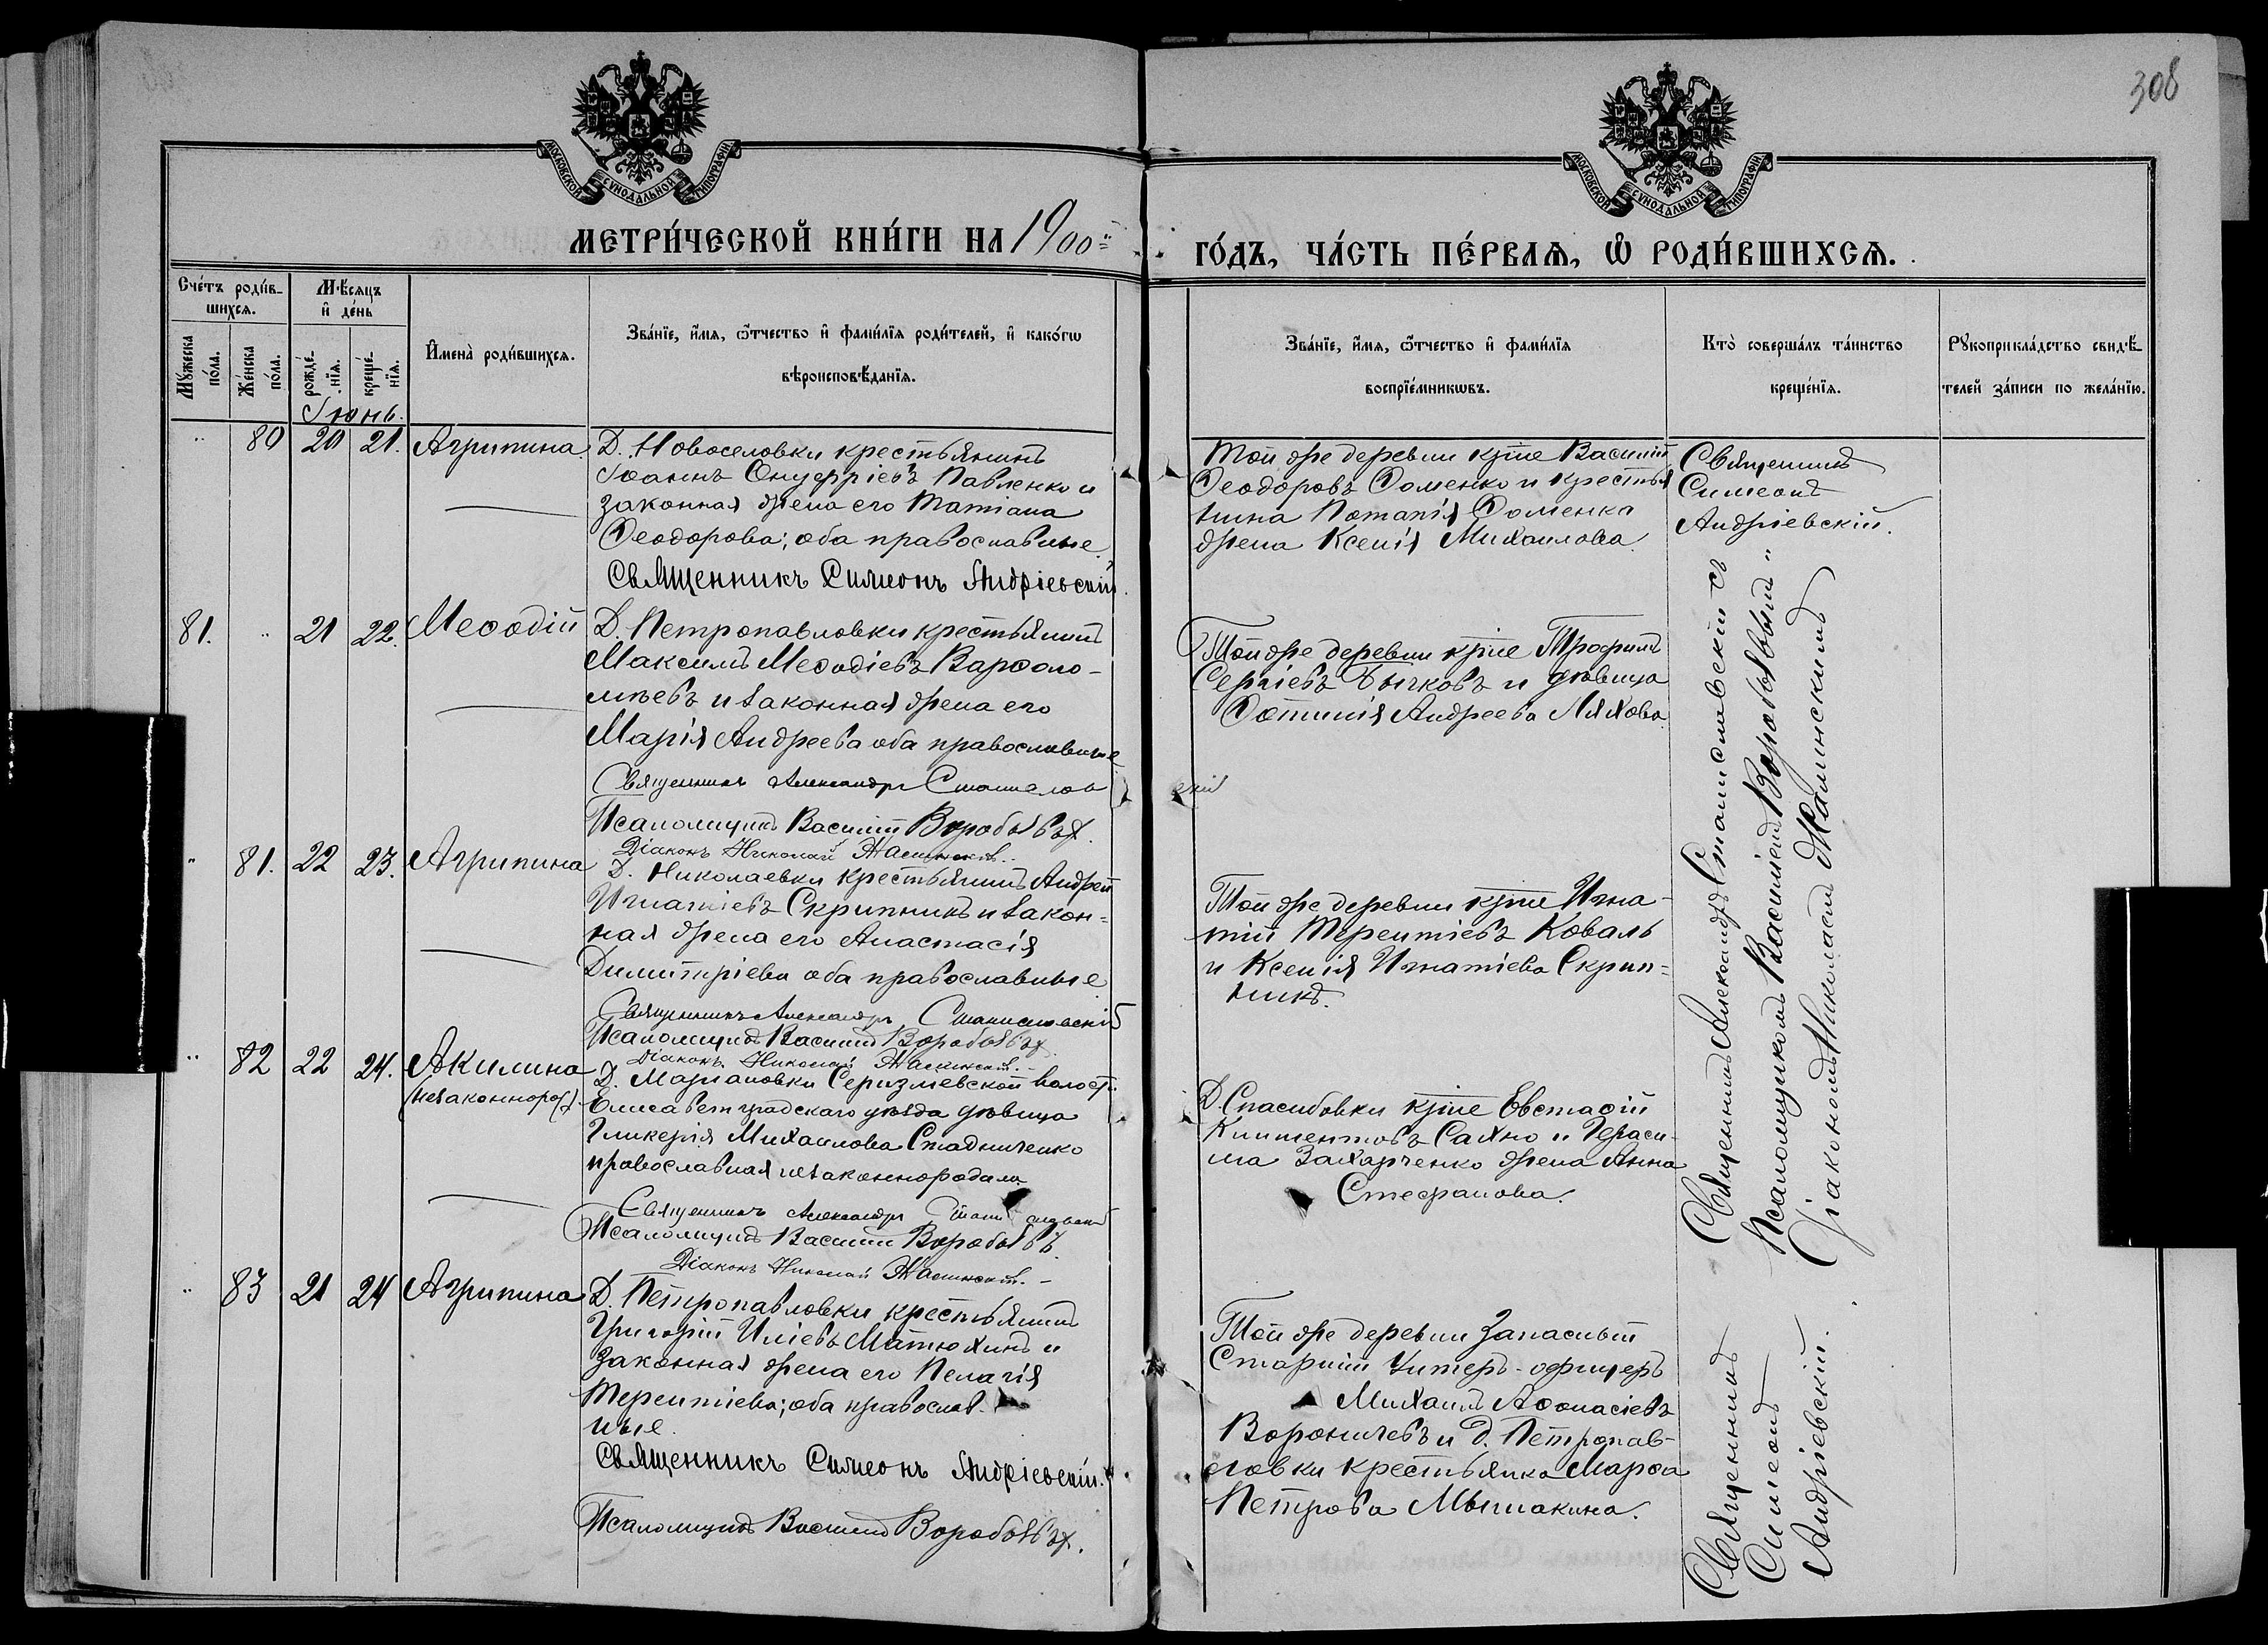 308
МОСКОВСКОЙ СѴНОДАЛЬНОЙ ТИПОГРАФІИ
МОСКОВСКОЙ СѴНОДАЛЬНОЙ ТИПОГРАФІИ
МЕТРИ́ЧЕСКОЙ КНИ́ГИ НА 1900=й
ГО́ДЪ, ЧА́СТЬ ПЕ́РВАѦ, Ѡ҆ РОДИ́ВШИХСѦ.
Сче́тъ роди́в-
шихсѧ.
Мꙋ́жеска по́ла.
Же́нска по́ла.
Мѣ́сѧцъ
и҆ де́нь
рожде́-нїѧ.
креще́-нїѧ.
И҆мена̀ роди́вшихсѧ.
Зва́нїе, и҆́мѧ, ѻ҆́тчество и҆ фами́лїѧ роди́телей, и҆ како́гѡ
вѣроисповѣ́данїѧ.
Зва́нїе, и҆́мѧ, ѻ҆́тчество и҆ фами́лїѧ
воспрїе́мникѡвъ.
Кто̀ соверша́лъ та́инство
креще́нїѧ.
Рꙋкоприкла́дство свидѣ́-
телей за́писи по жела́нїю.
Іюнь.
" 80 20 21. Агрипина.
Д. Новоселовки крестьянинъ
Іоаннъ Онуфріевъ Павленко и
законная жена его Татіана
Ѳеодорова; оба православные.
Священникъ Симеонъ Андріевскій.
Той же деревни кр̅не Василій
Ѳеодоровъ Доменко и крестья
нина Потапія Доменка
жена Ксенія Михаилова.
Священникъ
Симеонъ
Андріевскій.
81. " 21 22. Меѳодій
Д. Петропавловки крестьянинъ
Максимъ Меѳодіевъ Варѳоло-
мѣевъ и законная жена его
Марія Андреева оба православные
Священникъ Александръ Станислав
скій
Псаломщикъ Василій Воробьевъ.
Діаконъ Николай Жалинскій.
Той же деревни кр̅не Трофимъ
Сергіевъ Бычковъ и дѣвица
Фотинія Андреева Ляхова
" 81. 22 23. Агрипина
Д. Николаевки крестьянинъ Андрей
Игнатіевъ Скрипникъ и закон=
ная жена его Анастасія
Димитріева оба православные.
Священникъ Александръ Станиславскій
Псаломщикъ Василій Воробьевъ.
Діаконъ Николай Жалинскій.
Той же деревни кр̅не Игна-
тій Терентіевъ Коваль
и Ксенія Игнатіева Скрип=
никъ.
" 82 22 24. Акилина
(незаконнорож)
Д. Маріановки волост.
Елисаветградскаго уѣзда дѣвица
Гликерія Михаилова Стадниченко
православная незаконнородила
Священникъ Александръ Станиславскій
Псаломщикъ Василій Воробьевъ.
Діаконъ Николай Жалинскій.
Д. Спасибовки кр̅не Евстафій
Климентовъ Сахно и Гераси-
ма Захарченко жена Анна
Стефанова.
Священникъ Александръ Станиславскій съ
Псаломщикомъ Василіемъ Воробьевымъ "
Діакономъ Николаемъ Жалинскимъ
" 83 21 24 Агрипина
Д. Петропавловки крестьянинъ
Григорій Иліевъ Матюхинъ и
законная жена его Пелагія
Терентіева; оба православ-
ные.
Священникъ Симеонъ Андріевскій.
Псаломщикъ Василій Воробьевъ.
Той же деревни Запасный
Старшій Унтеръ-офицеръ
Михаилъ Аѳонасіевъ
Вороничевъ и д. Петропав-
ловки крестьянка Марѳа
Петрова Мышакина.
Священникъ
Симеонъ
Андріевскій.